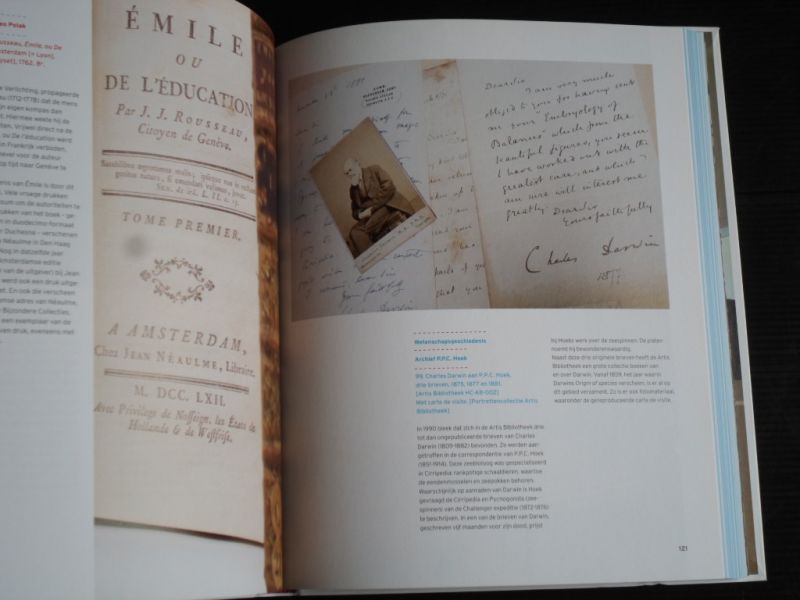 Polak
Rousseau, Émile, ou De
1762. 8°.
Verlichting, propageerde
(1712-1778) dat de mens
eigen kompas dan
Hiermee wekte hij de
Vrijwel direct na de
ou De l'éducation werd
in Frankrijk verboden,
voor de auteur
tijd naar Genève te
van Émile is door dit
Vele vroege drukken
om de autoriteiten te
drukken van het boek - ge-
in duodecimo formaat
Duchesne - verschenen
Néaulme in Den Haag
Nog in datzelfde jaar
Amsterdamse editie
van de uitgever) bij Jean
werd ook een druk uitge-
En ook die verscheen
adres van Néaulme.
Bijzondere Collecties,
een exemplaar van de
druk, eveneens met
ÉMILE
OU
DE L'ÉDUCATION
Par J. J. ROUSSEAU,
Citoyen de Genève.
Sanabilibus ægrotamus malis; ipsaque nos in rectum
genitos natura, si emendari velimus, juvat.
Sen. de irâ. L. II. c. 13.
TOME PREMIER.
A AMSTERDAM,
Chez JEAN NÉAULME, Libraire.
M. DCC. LXII.
Avec Privilege de Nosseign. les Etats de
Hollande & de Westfrise.
1881
Dear Sir
I am very much
obliged to you for having sent
me your Embryology of
Balanus which from the
beautiful figures, you seem
to have worked out with the
greatest care, and which I
am sure will interest me
greatly. Dear Sir
Yours faithfully
Charles Darwin
1877
Wetenschapsgeschiedenis
Archief P.P.C. Hoek
99. Charles Darwin aan P.P.C. Hoek,
drie brieven, 1875, 1877 en 1881.
[Artis Bibliotheek HC-AB-002]
Met carte de visite. [Portrettencollectie Artis
Bibliotheek]
In 1990 bleek dat zich in de Artis Bibliotheek drie
tot dan ongepubliceerde brieven van Charles
Darwin (1809-1882) bevonden. Ze werden aan-
getroffen in de correspondentie van P.P.C. Hoek
(1851-1914). Deze zeebioloog was gespecialiseerd
in Cirripedia: rankpotige schaaldieren, waartoe
de eendenmosselen en zeepokken behoren.
Waarschijnlijk op aanraden van Darwin is Hoek
gevraagd de Cirripedia en Pycnogonida (zee-
spinnen) van de Challenger expeditie (1872-1876)
te beschrijven. In een van de brieven van Darwin,
geschreven vijf maanden voor zijn dood, prijst
hij Hoeks werk over de zeespinnen. De platen
noemt hij bewonderenswaardig.
Naast deze drie originele brieven heeft de Artis
Bibliotheek een grote collectie boeken van
en over Darwin. Vanaf 1859, het jaar waarin
Darwins Origin of species verscheen, is er al op
dit gebied verzameld. Zo is er ook fotomateriaal,
waaronder de gereproduceerde carte de visite.
121